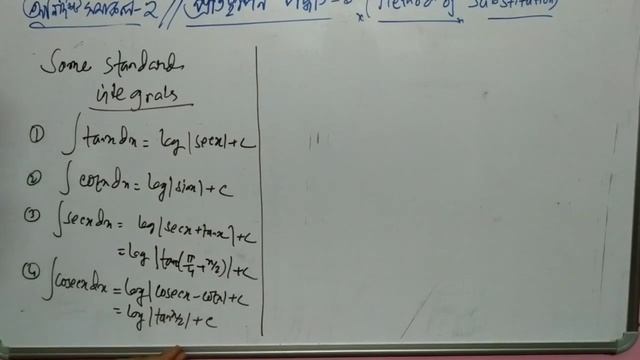 অনির্দিষ্ট সমাকল-2 // প্রতিস্থাপন পদ্ধতি (Method of Substitution)
Some standard
integrals
① ∫tanx dx = log|secx|+c
② ∫cotx dx = log|sinx|+c
③ ∫secx dx = log|secx+tanx|+c
= log|tan(π/4+x/2)|+c
④ ∫cosecx dx = log|cosecx-cotx|+c
= log|tanx/2|+c